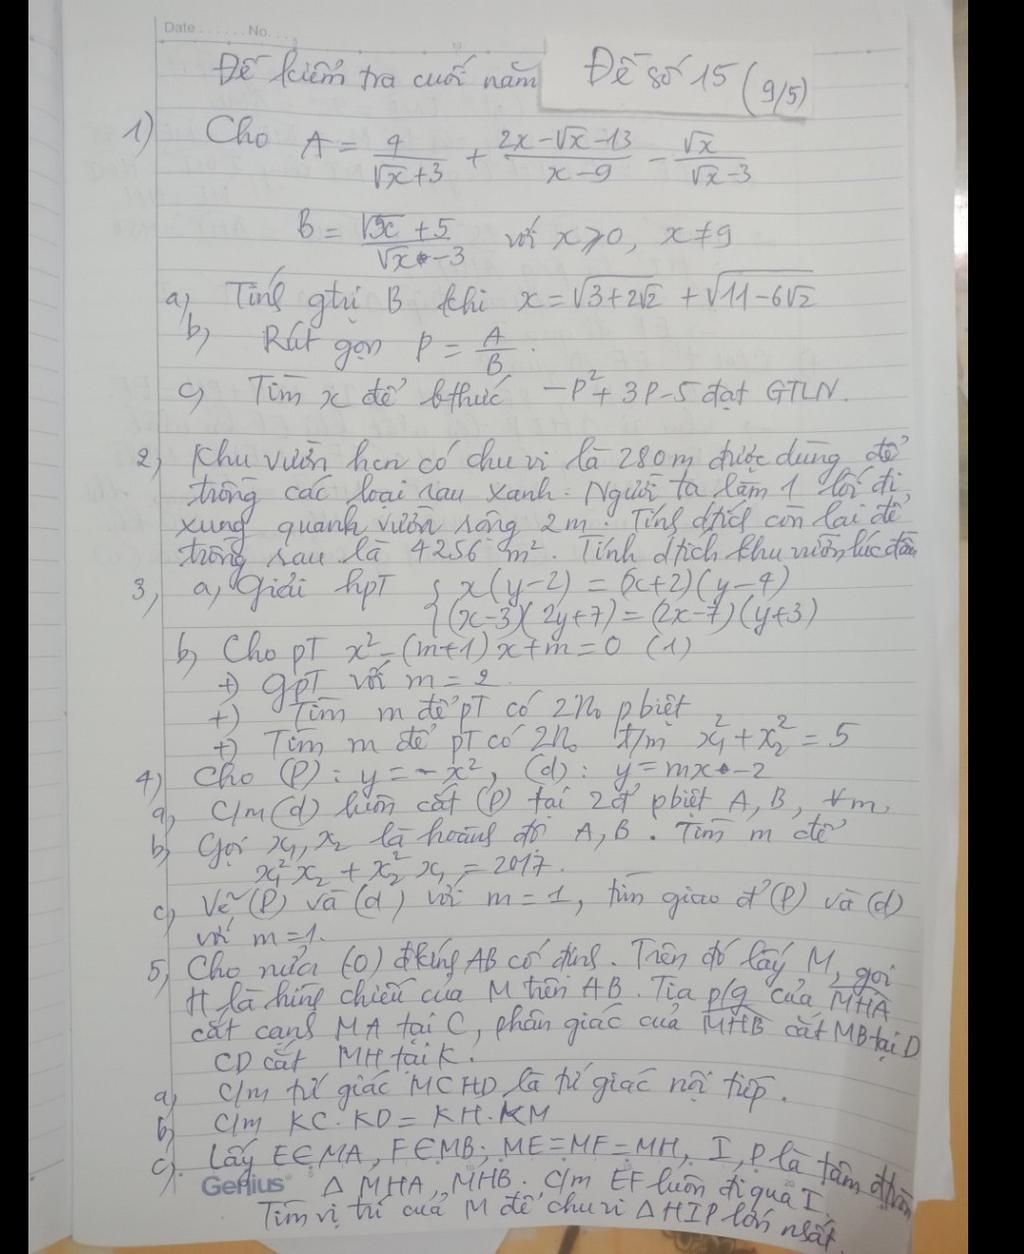 Date ...... No. ...
Đề kiểm tra cuối năm Đề số 15 (9/5)
1) Cho A = 4/(√x+3) + (2x-√x-13)/(x-9) - √x/(√x-3)
B = (√x+5)/(√x-3) với x ≥ 0, x ≠ 9
a, Tính gtrị B khi x = √(3+2√2) + √(11-6√2)
b, Rút gọn P = A/B.
c, Tìm x để bthức -P²+3P-5 đạt GTLN.
2, Khu vườn hcn có chu vi là 280m được dùng để
trồng các loại rau xanh. Người ta làm 1 lối đi
xung quanh vườn rộng 2m. Tính dtích còn lại để
trồng rau là 4256 m². Tính dtích khu vườn lúc đầu
3, a, Giải hpT { x(y-2) = (x+2)(y-4)
(x-3)(2y+7) = (2x-7)(y+3)
b, Cho pT x²-(m+1)x+m=0 (1)
+) GpT với m = 2
+) Tìm m để pT có 2No pbiệt
+) Tìm m để pT có 2No t/m x₁²+x₂² = 5
4) Cho (P): y = -x², (d): y = mx-2
a, C/m (d) luôn cắt (P) tại 2đ' pbiệt A, B, ∀m
b, Gọi x₁, x₂ là hoành độ A, B. Tìm m để
x₁²x₂ + x₂²x₁ = 2017.
c, Vẽ (P) và (d) với m = 1, tìm giao đ' (P) và (d)
với m=1.
5, Cho nửa (O) đkính AB cố định. Trên đó lấy M, gọi
H là hình chiếu của M trên AB. Tia p/g của MHA
cắt cạnh MA tại C, phân giác của MHB cắt MB tại D
CD cắt MH tại K.
a, C/m tứ giác MCHD là tứ giác nội tiếp.
b, C/m KC.KD = KH.KM
c). Lấy E∈MA, F∈MB; ME=MF=MH, I, P là tâm đtròn
Genius Δ MHA, MHB. C/m EF luôn đi qua I.
Tìm vị trí của M để chu vi ΔHIP lớn nhất.